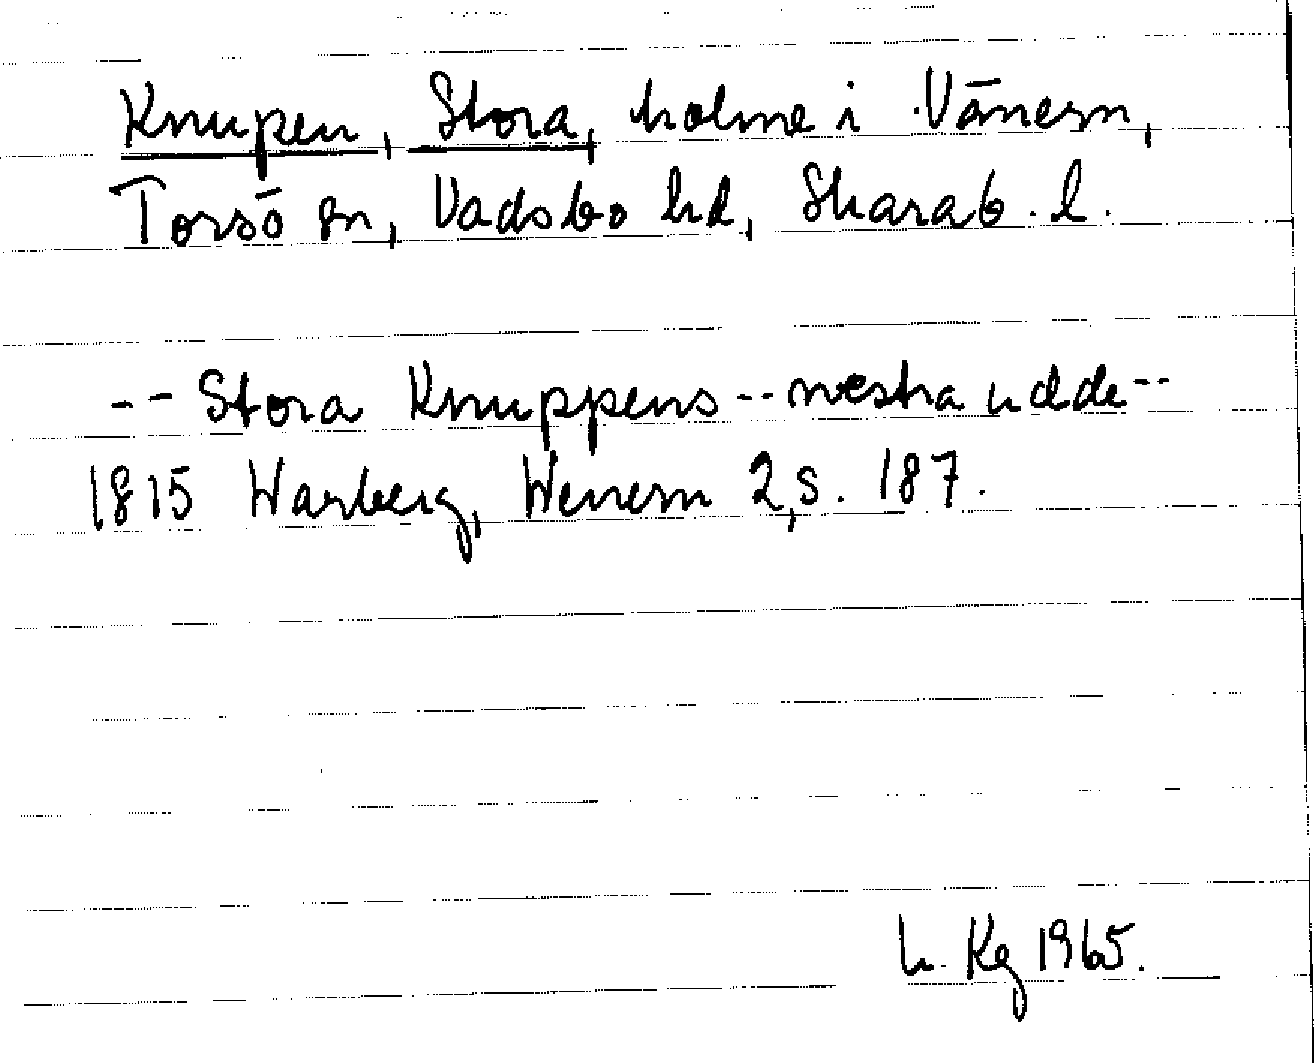 Knupen, Stora, holme i Vänern,
Torsö sn, Vadsbo hd, Skarab. l.
-- Stora Knuppens -- westra udde --
1815 Warberg, Wenern 2, s. 187.
h. Kg 1965.